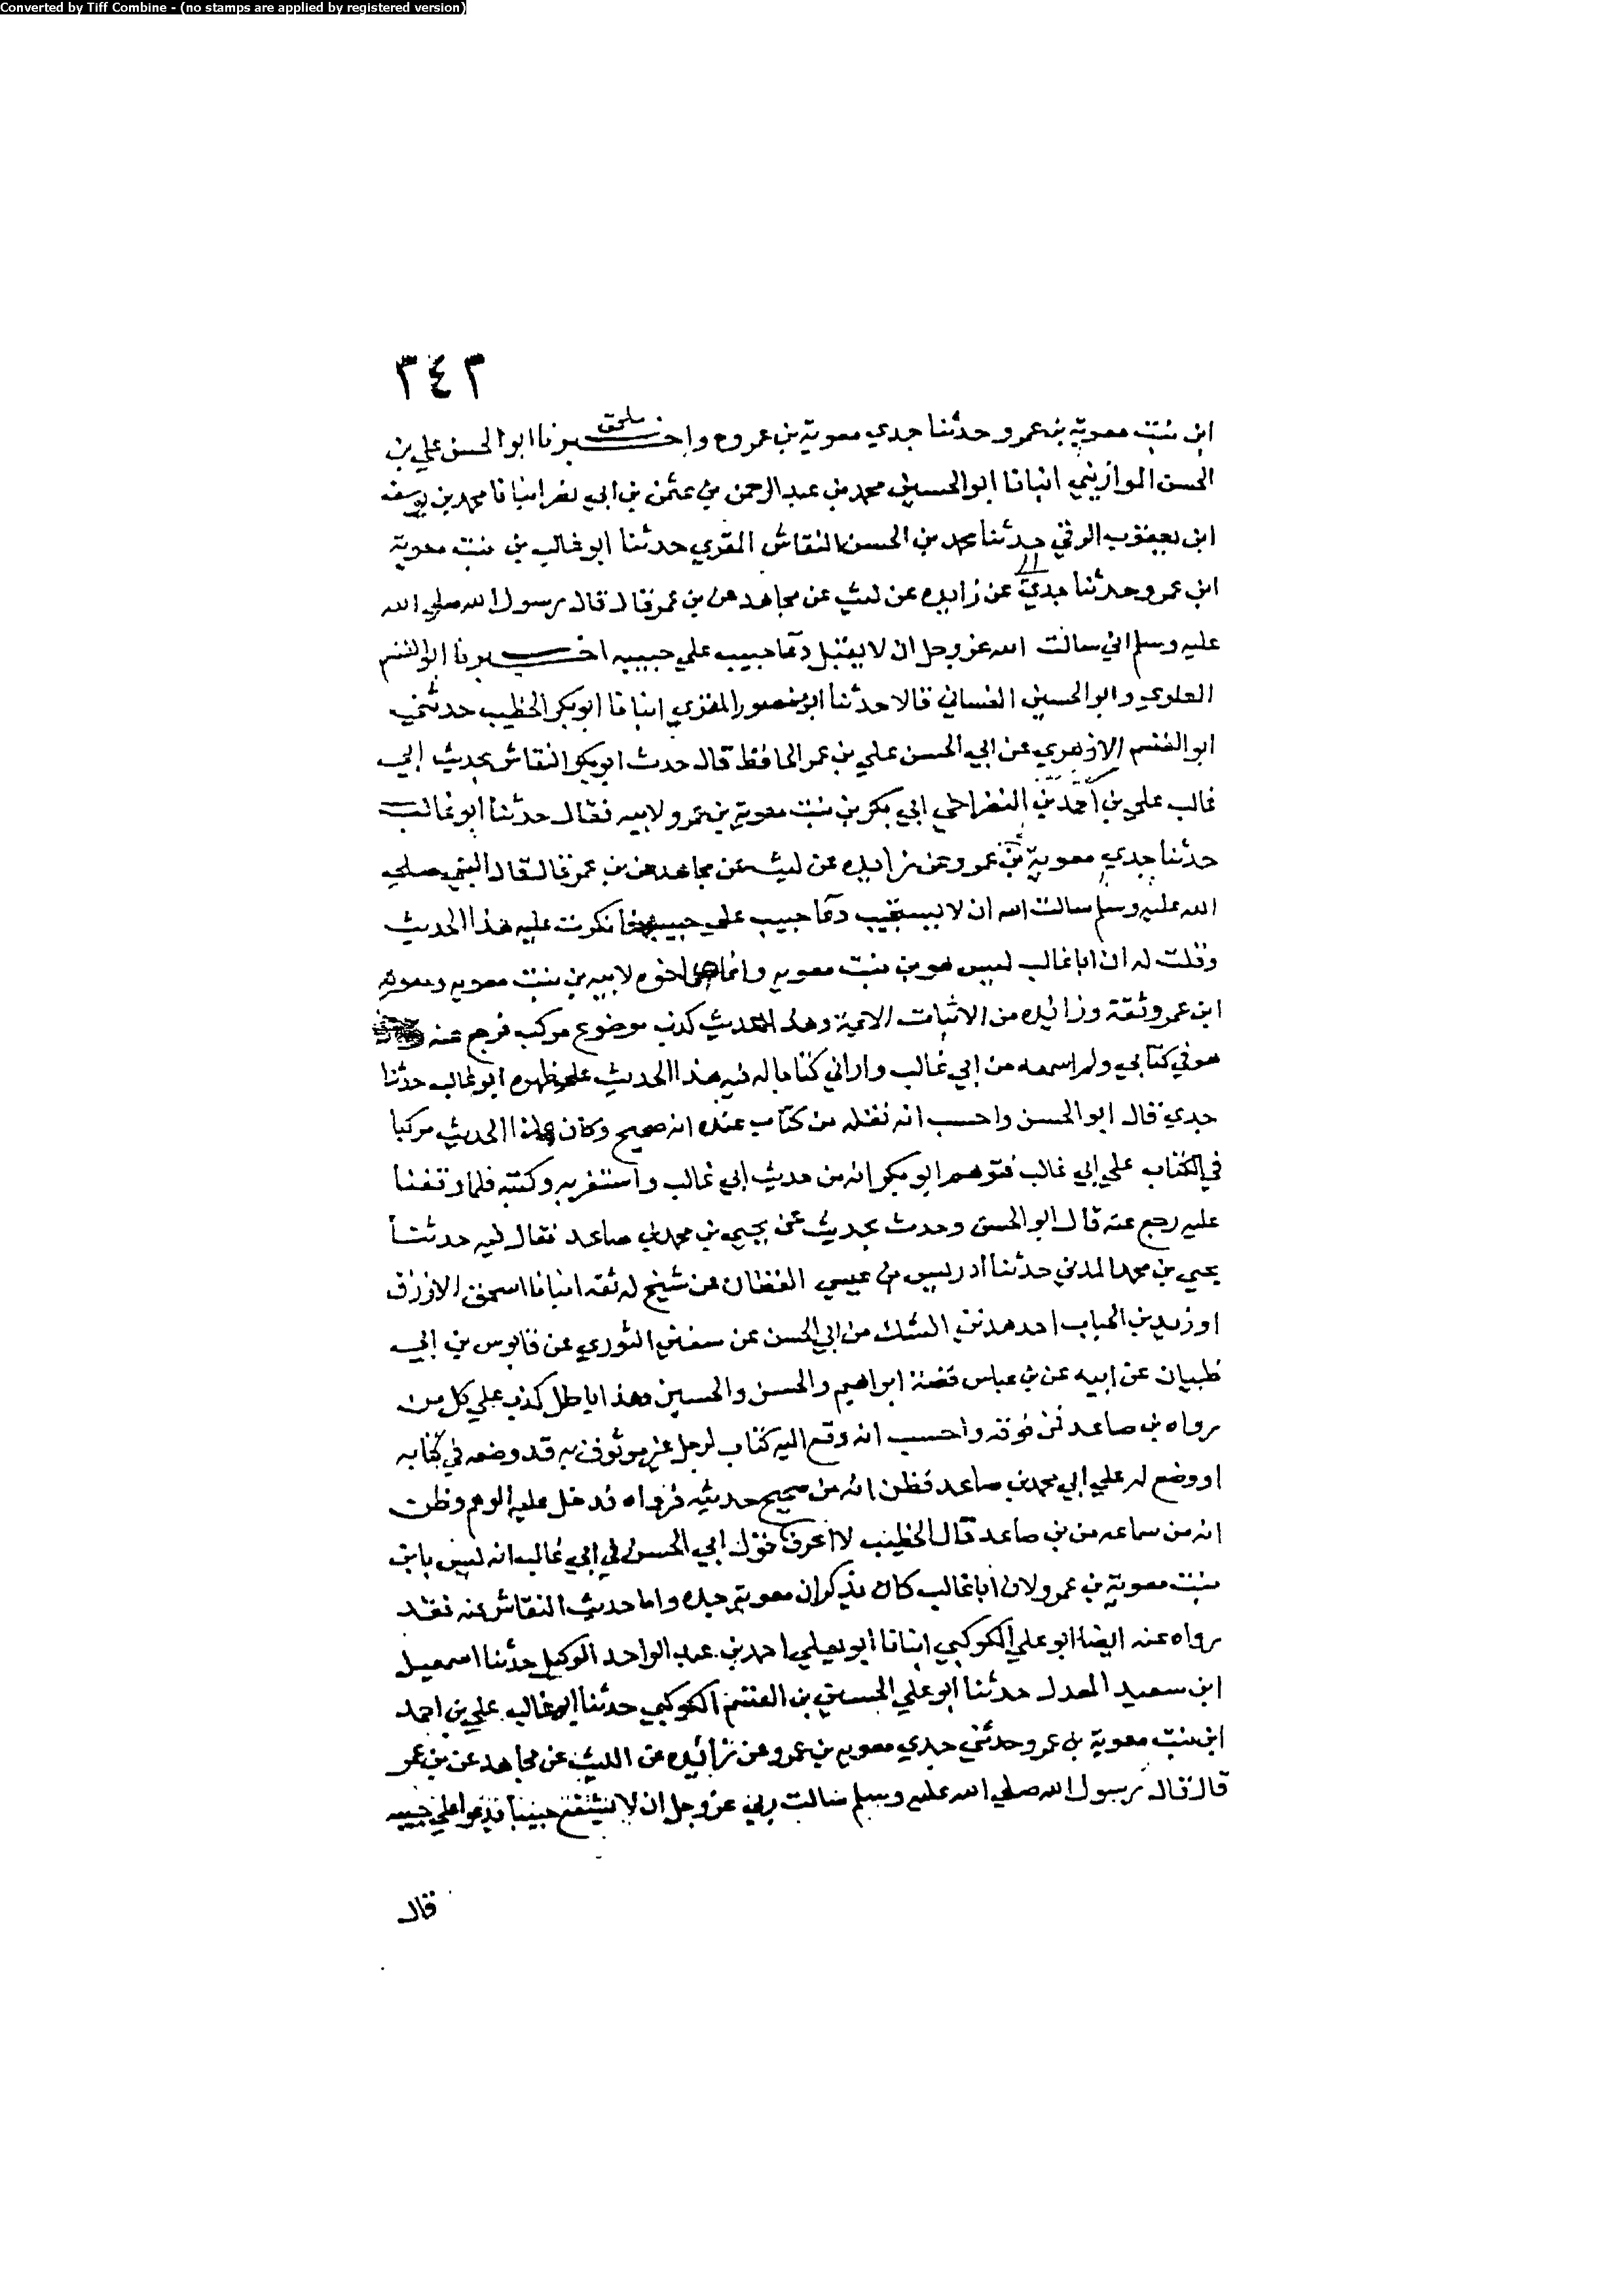 Converted by Tiff Combine - (no stamps are applied by registered version)
٣٤٢
ابن بنت معوية بن عمرو حدثنا جدي معوية بن عمرو ح واخبرنا ابوالحسن علي بن
ملحق
الحسن الموازيني انبانا ابوالحسين محمد بن عبد الرحمن بن عثمن بن ابي نصر انبانا محمد بن يوسف
ابن يعقوب الرقي حدثنا محمد بن الحسن النقاش المقري حدثنا ابوغالب بن بنت معوية
ابن عمرو حدثنا جدي عن زايده عن ليث عن مجاهد عن بن عمر قال قال رسول الله صلي الله
عليه وسلم اني سالت الله عزوجل ان لا يقبل دعا حبيب علي حبيبه اخبرنا ابوالقسم
العلوي وابوالحسين الغساني قالا حدثنا ابومنصور المقري انبانا ابوبكر الخطيب حدثني
ابوالقسم الازهري عن ابي الحسن علي بن عمر الحافظ قال حدث ابوبكر النقاش بحديث ابي
غالب علي بن احمد بن النضر اخي ابي بكر بن بنت معوية بن عمرو لابيه فقال حدثنا ابوغالب
حدثنا جدي معوية بن عمرو عن زايده عن ليث عن مجاهد عن بن عمر قال قال النبي صلي
الله عليه وسلم سالت الله ان لا يستجيب دعا حبيب علي حبيبه فانكرت عليه هذا الحديث
وقلت له ان اباغالب ليس هو بن بنت معويه وانما اخوه لابيه بن بنت معويه ومعويه
ابن عمرو ثقة وزائده من الاثبات الايمة وهذا الحديث كذب موضوع مركب فرجع عنه
هو في كتابي ولم اسمعه من ابي غالب واراني كتابا له فيه هذا الحديث علي ظهره ابوغالب حدثنا
جدي قال ابوالحسن واحسب انه نقله من كتاب عنده انه صحيح وكان هذا الحديث مركبا
في الكتاب علي ابي غالب فتوهم ابوبكر انه من حديث ابي غالب واستغربه وكتبه فلما وقفنا
عليه رجع عنه قال ابوالحسن وحدث بحديث عن يحيي بن محمد بن صاعد فقال فيه حدثنا
يحيي بن محمد المدني حدثنا ادريس بن عيسي القطان عن شيخ له ثقه انبانا اسحق الازرق
اوزيد بن الحباب احدهذين الشك من ابي الحسن عن سفين الثوري عن قابوس بن ابي
ظبيان عن ابيه عن بن عباس قصة ابراهيم والحسن والحسين وهذا باطل كذب علي كل من
رواه بن صاعد فمن فوقه واحسب انه وقع اليه كتاب لرجل غير موثوق به قد وضعه في كتابه
او وضع له علي ابي محمد بن صاعد فظن انه من صحيح حديثه فرواه فدخل عليه الوهم وظن
انه من سماعه من بن صاعد قال الخطيب لا اعرف قول ابي الحسن في ابي غالب انه ليس بابن
بنت معوية بن عمرو لان اباغالب كان يذكر ان معوية جده واما حديث النقاش عنه فقد
رواه عنه ايضا ابوعلي الكوكبي انبانا ابويعلي احمد بن عبد الواحد الوكيل حدثنا اسمعيل
ابن سعيد المعدل حدثنا ابوعلي الحسين بن القسم الكوكبي حدثنا ابوغالب علي بن احمد
ابن بنت معوية بن عمرو حدثني جدي معويه بن عمرو عن زائده عن الليث عن مجاهد عن بن عمر
قال قال رسول الله صلي الله عليه وسلم سالت ربي عزوجل ان لا يشفع حبيبا يدعوا علي حبيبه
قال